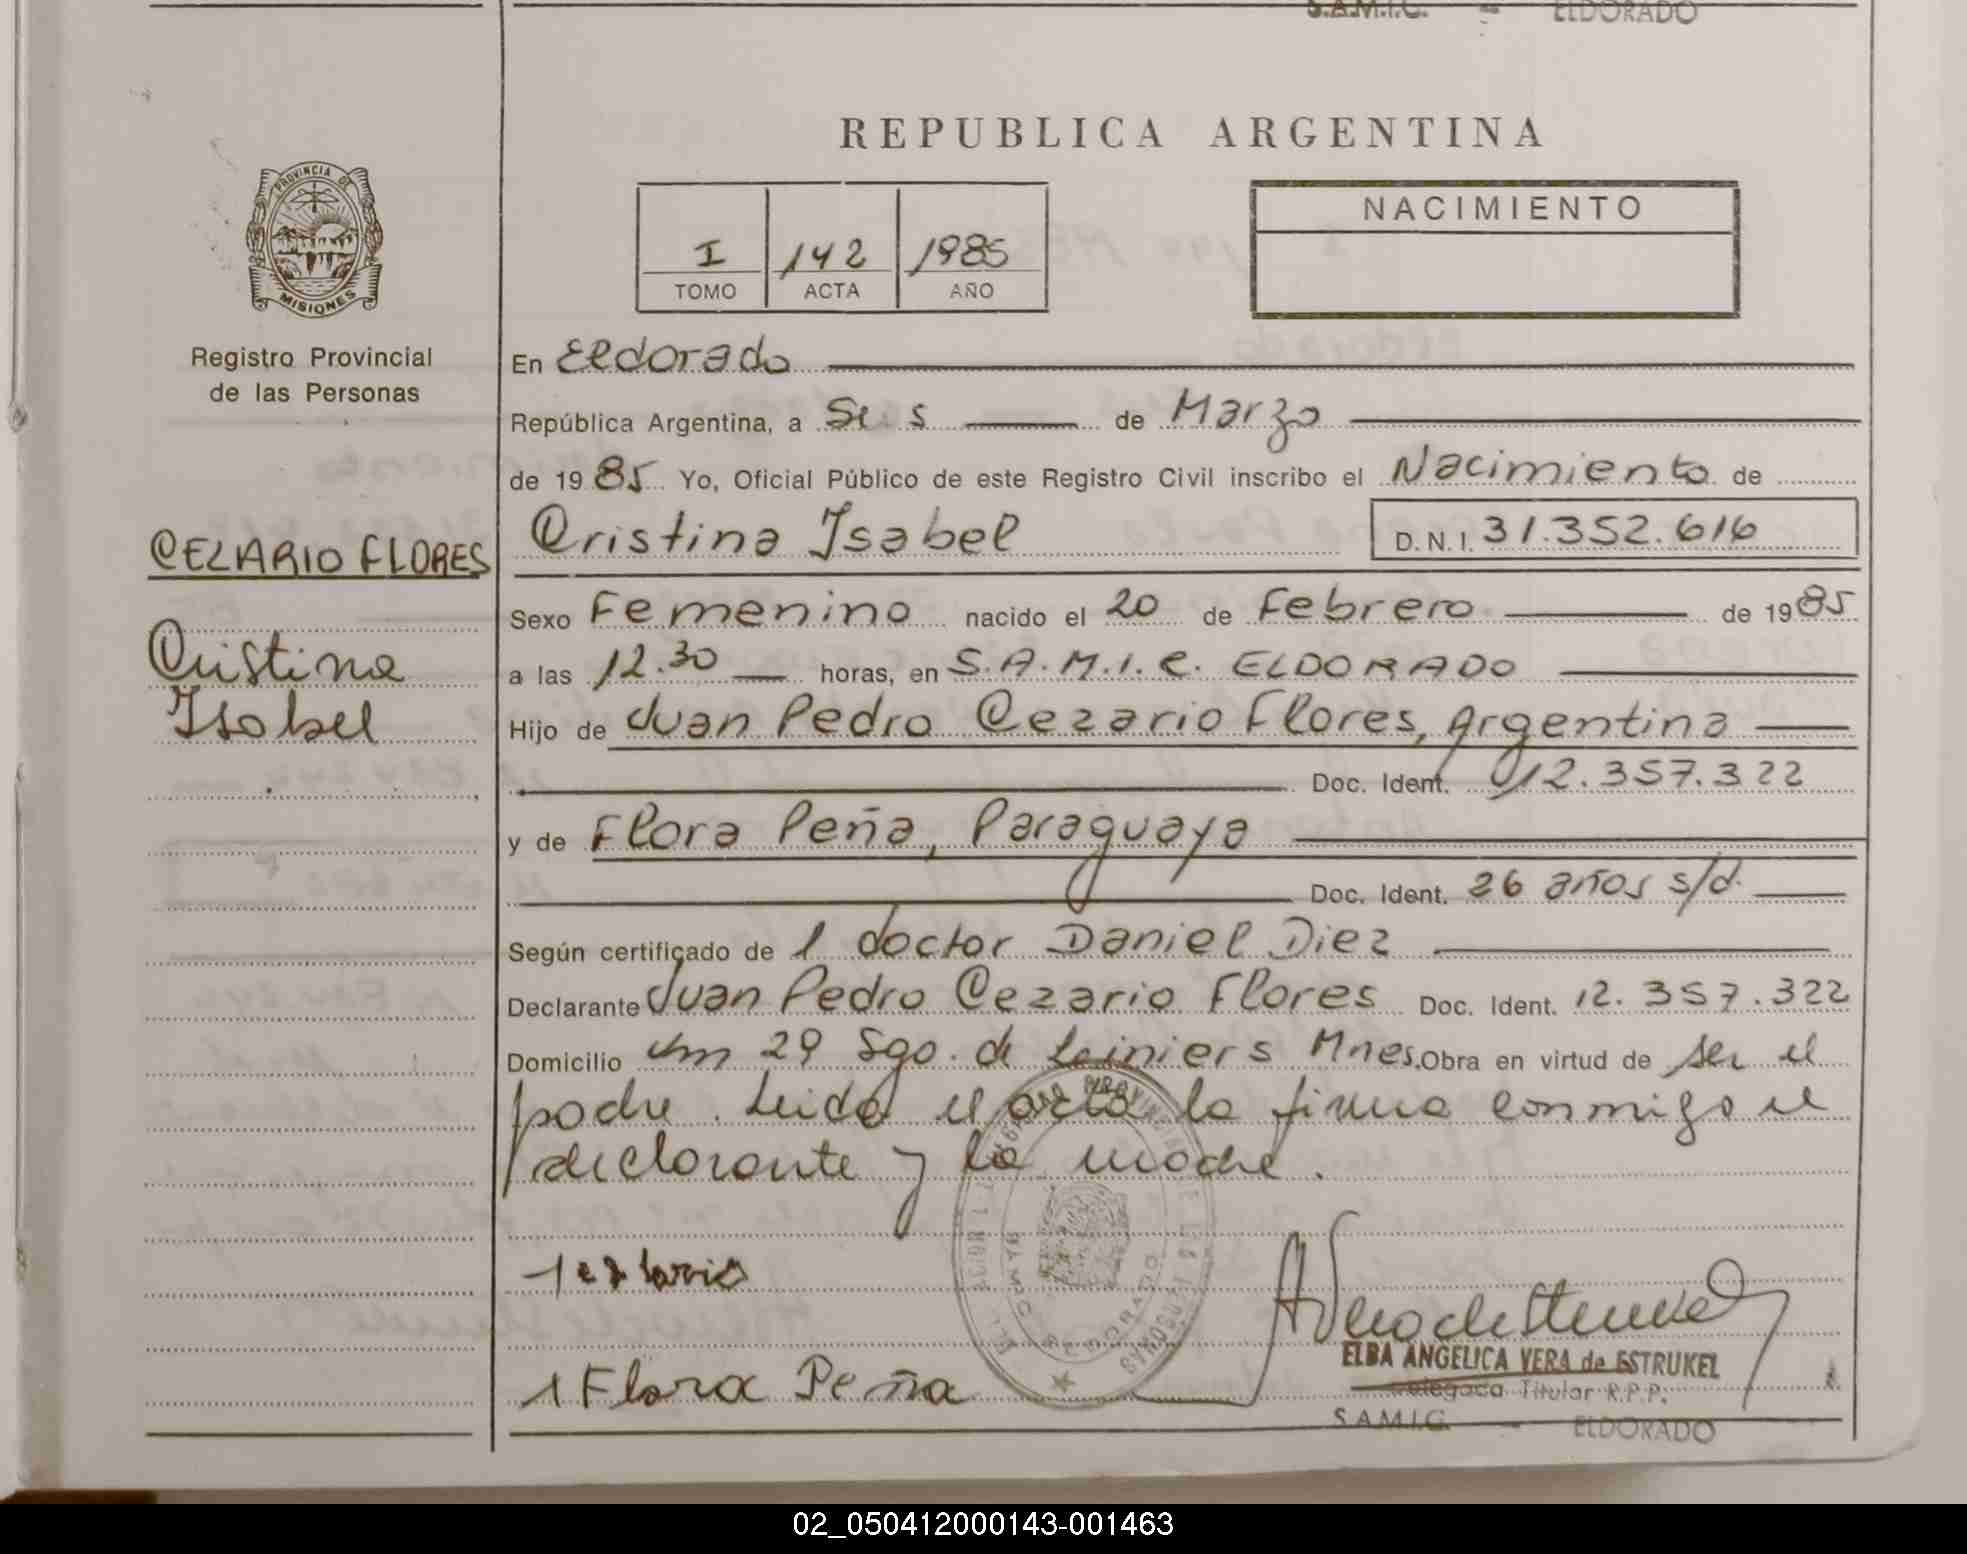 S.A.M.I.C. - ELDORADO
REPUBLICA ARGENTINA
PROVINCIA DE
MISIONES
Registro Provincial
de las Personas
I 142 1985
TOMO ACTA AÑO
NACIMIENTO
En Eldorado
República Argentina, a Seis de Marzo
de 1985 Yo, Oficial Público de este Registro Civil inscribo el Nacimiento de
CEZARIO FLORES
Cristina
Isabel
Cristina Isabel D.N.I. 31.352.616
Sexo Femenino nacido el 20 de Febrero de 1985
a las 12.30 horas, en S.A.M.I.C. ELDORADO
Hijo de Juan Pedro Cezario Flores, Argentina
Doc. Ident. 12.357.322
y de Flora Peña, Paraguaya
Doc. Ident. 26 años s/d.
Según certificado de l doctor Daniel Diez
Declarante Juan Pedro Cezario Flores Doc. Ident. 12.357.322
Domicilio km 29 Sgo. de Leiniers Mnes. Obra en virtud de ser el
padre. Leida el acta la firma conmigo el
declarante y la madre.
Flora Peña
ELBA ANGELICA VERA de ESTRUKEL
Delegada Titular R.P.P.
S.A.M.I.C. - ELDORADO
02_050412000143-001463